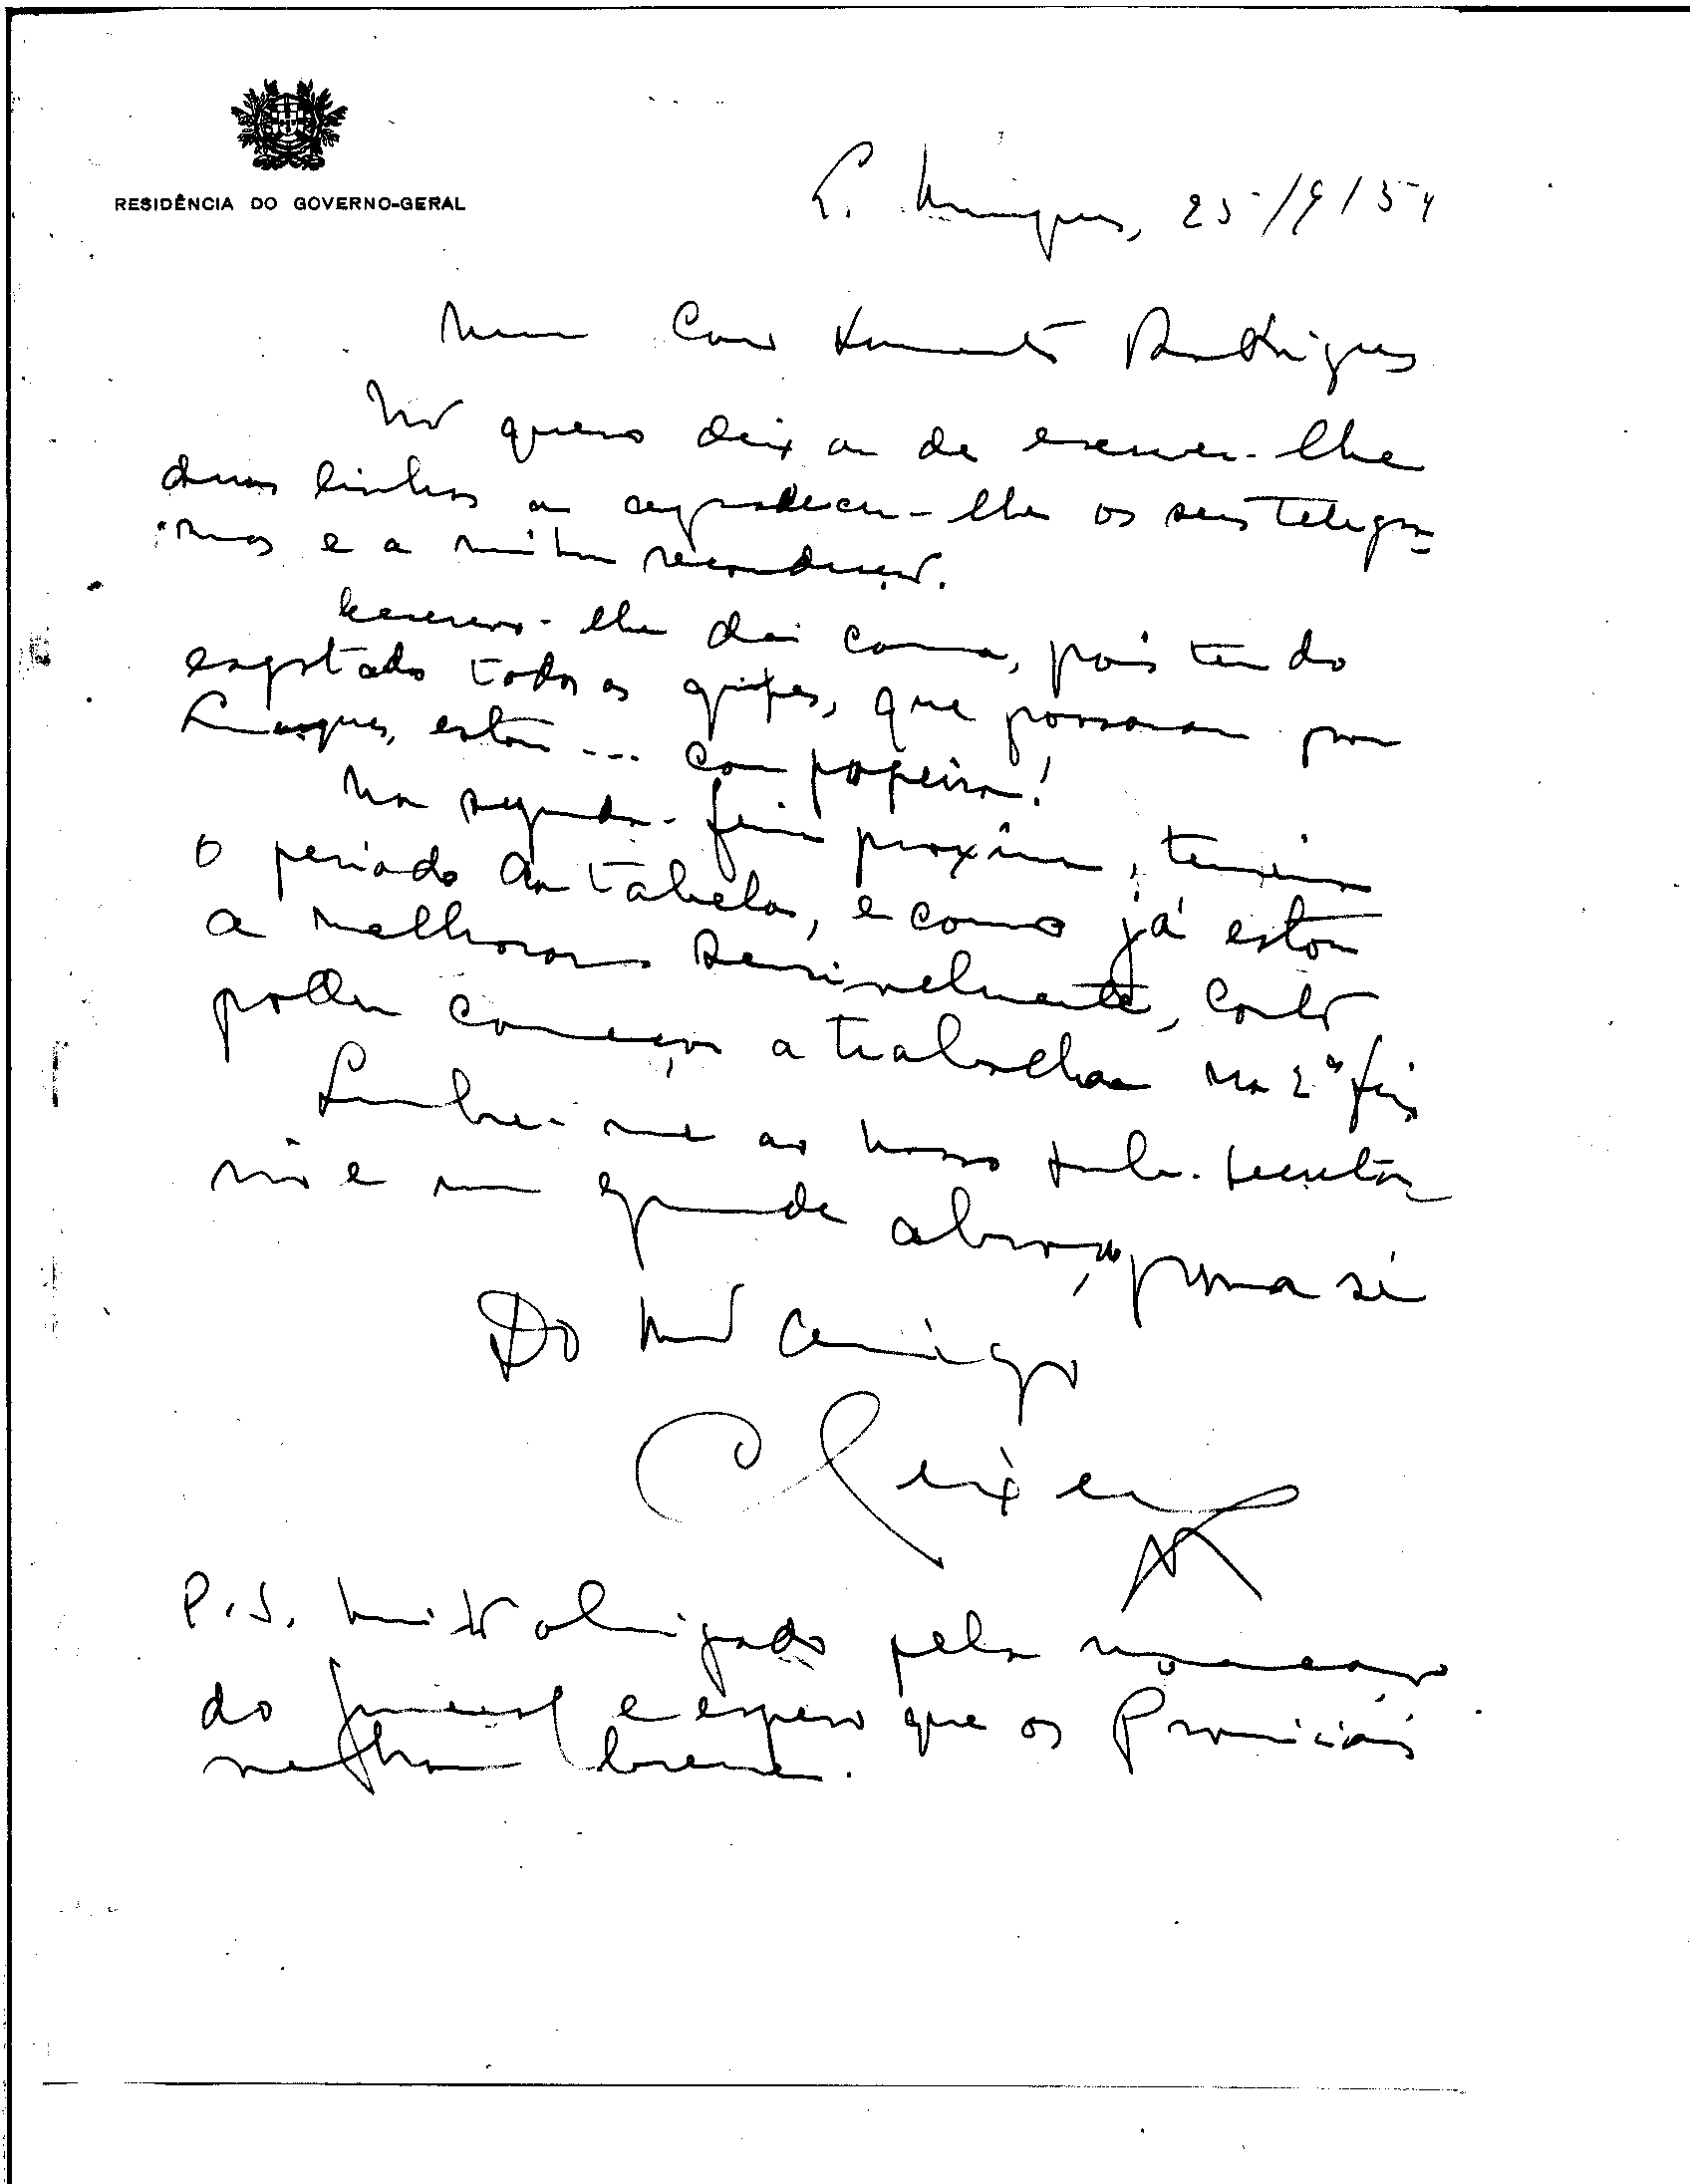 RESIDÊNCIA DO GOVERNO-GERAL
L. Marques, 25/9/54
Meu Caro Sarmento Rodrigues
Não quero deixar de escrever-lhe
duas linhas a agradecer-lhe os seus telegra=
mas e a minha recondução.
Escrevo-lhe da cama, pois tendo
esgotado todas as gripes, que passaram por
L. Marques, estou... com papeira!
Na segunda-feira próxima, termina
o período da tabela, e como já estou
a melhorar sensivelmente, conto
poder começar a trabalhar na 2ª feira
Lembre-me ao nosso Sub-Secretá
rio e um grande abraço para si
Do seu amigo
Teixeira
P.S. Muito obrigado pela nomeação
do e espero que os Provinciais
venham breve.